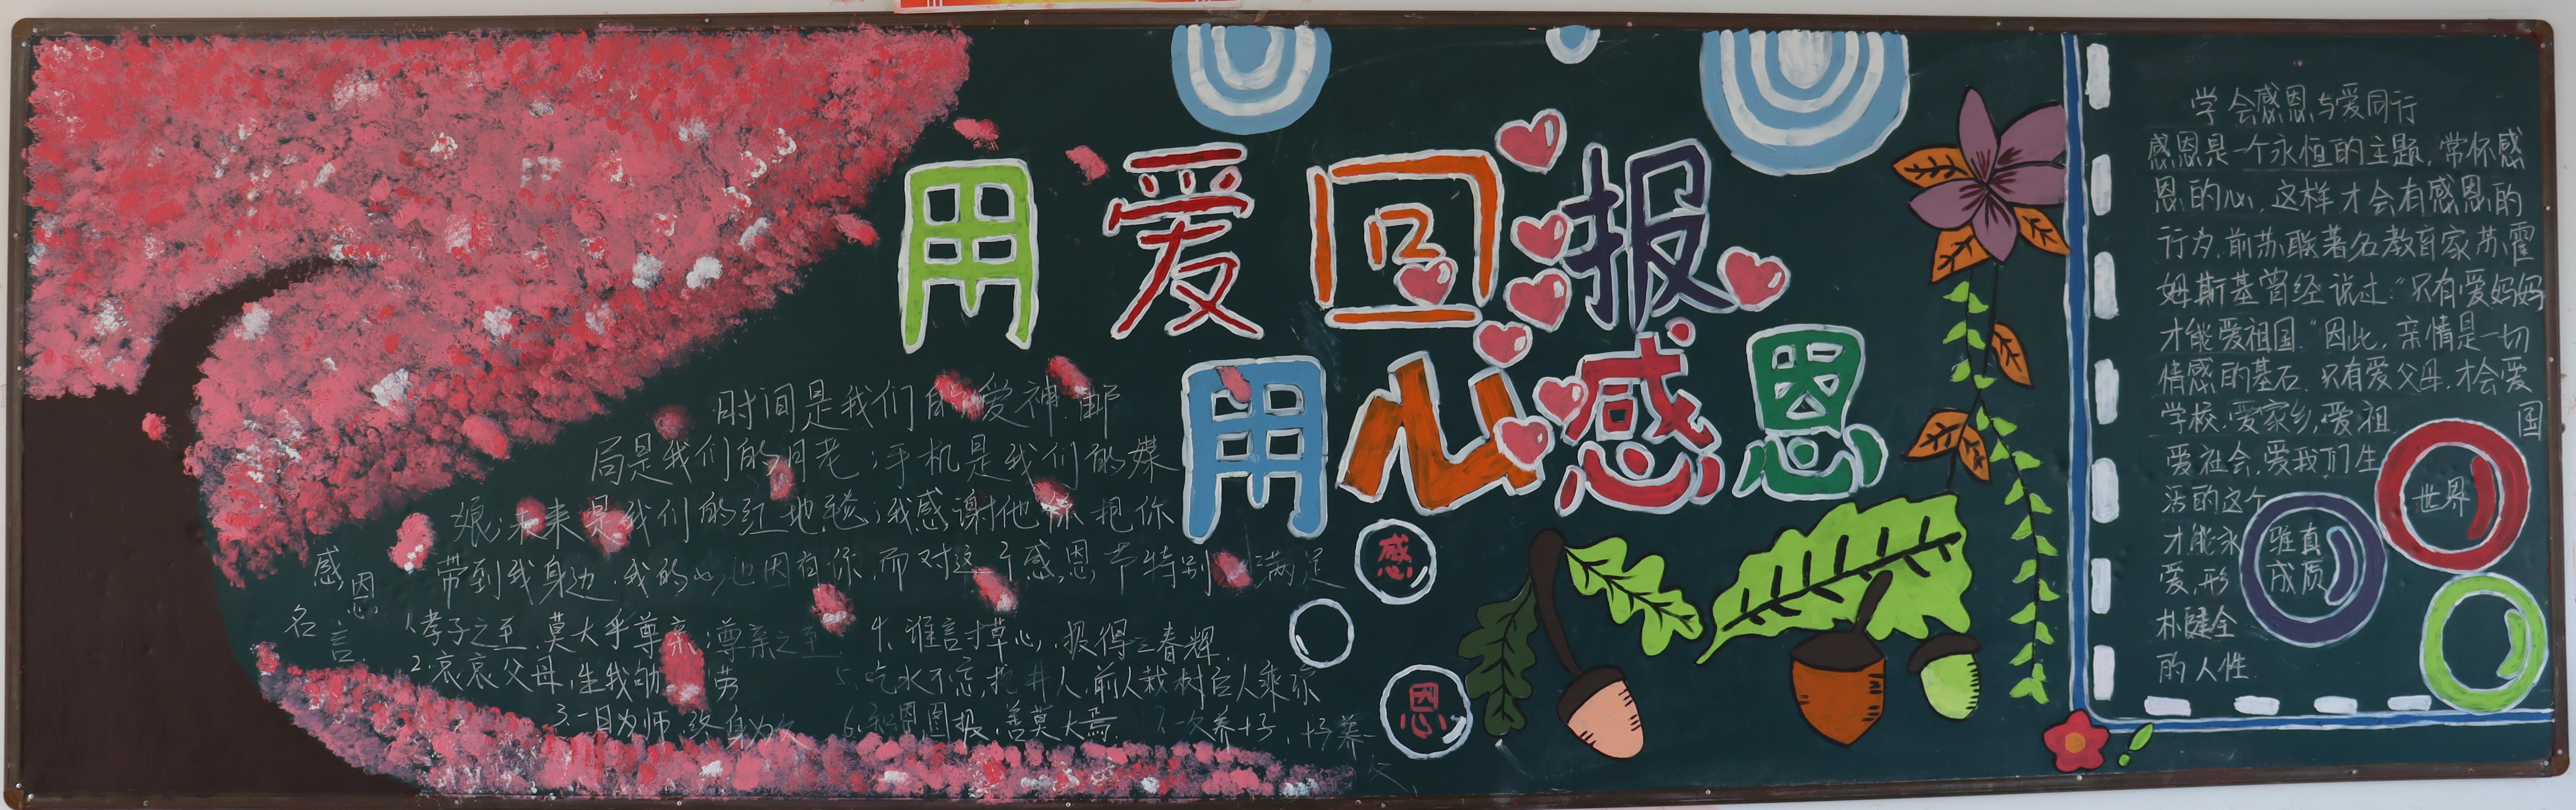 用爱回报
用心感恩
时间是我们的爱神,邮
局是我们的月老;手机是我们的媒
娘;未来是我们的红地毯;我感谢他你把你
带到我身边,我的心也因有你,而对这个感恩节特别满足
感恩
名言
1.孝子之至,莫大乎尊亲;尊亲之至
2.哀哀父母,生我劬劳
3.一日为师,终身为父
4.谁言寸草心,报得三春辉
5.吃水不忘,挖井人,前人栽树后人乘凉
6.知恩图报,善莫大焉
7.一次养子,仔养一
感
恩
学会感恩,与爱同行
感恩是一个永恒的主题,常怀感
恩的心,这样才会有感恩的
行为.前苏联著名教育家苏霍
姆斯基曾经说过:“只有爱妈妈
才能爱祖国.”因此,亲情是一切
情感的基石.只有爱父母,才会爱
学校.爱家乡,爱祖国
爱社会,爱我们生
活的这个世界
才能永雅真
爱,形成质
朴健全
的人性.